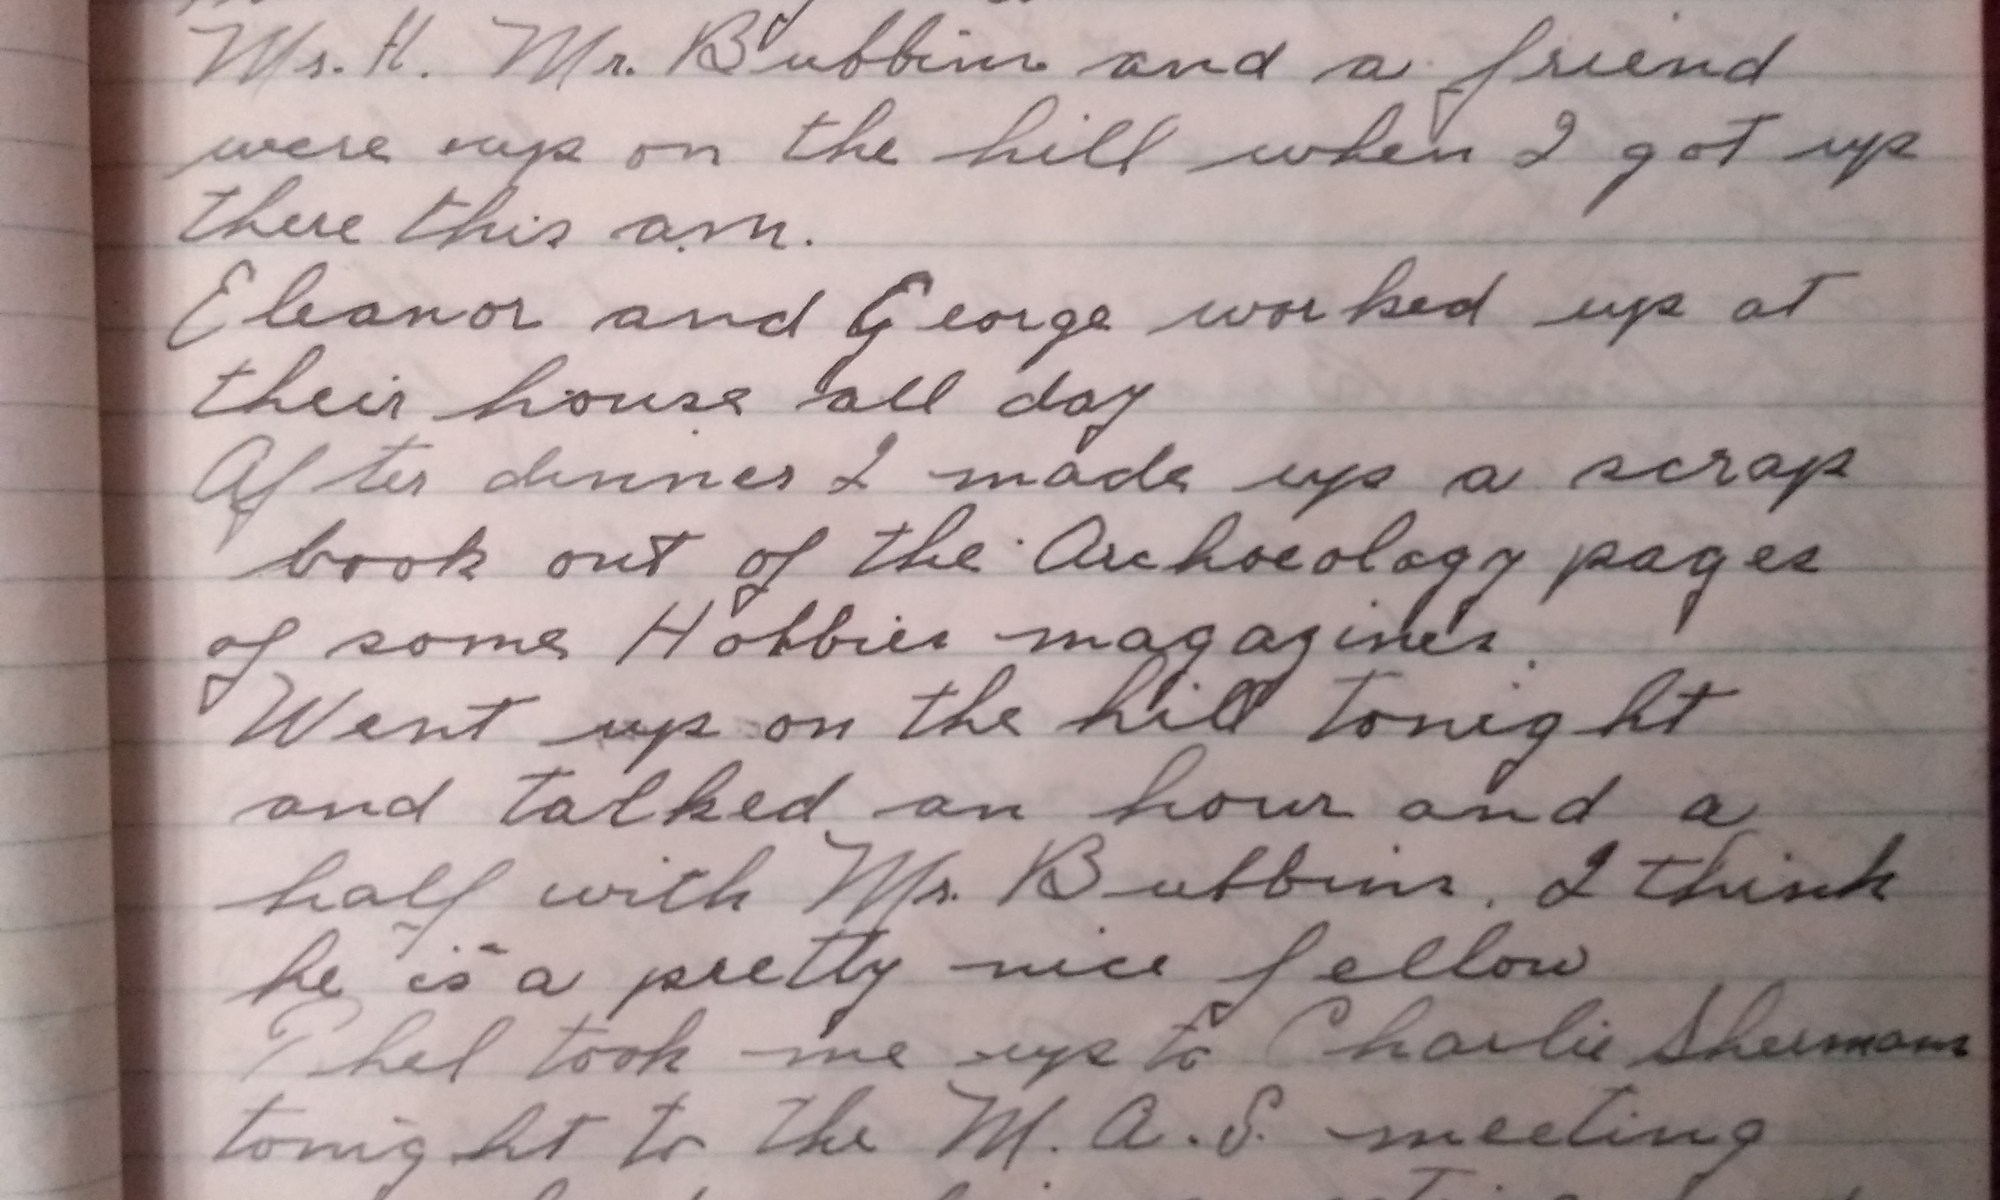 Mr. H. Mr. Bubbins and a friend
were up on the hill when I got up
there this a.m.
Eleanor and George worked up at
their house all day
After dinner I made up a scrap
book out of the Archaeology pages
of some Hobbies magazines.
Went up on the hill tonight
and talked an hour and a
half with Mr. Bubbins. I think
he is a pretty nice fellow
Phel took me up to Charlie Shermans
tonight to the M.A.S. meeting